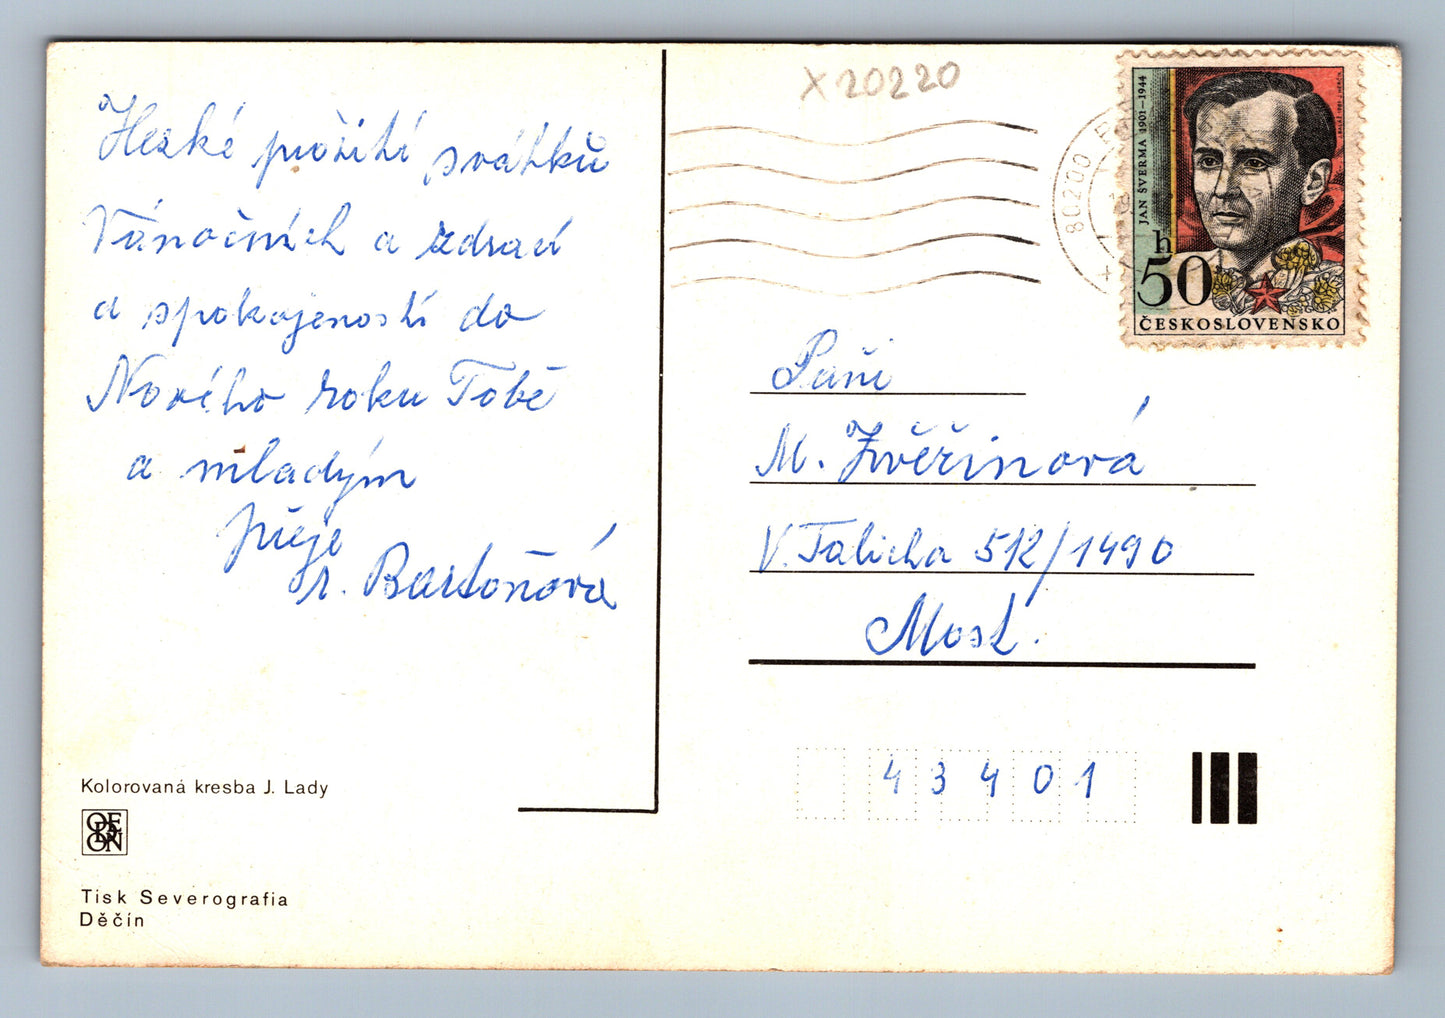 X20220
Hezké prožití svátků
Vánočních a zdraví
a spokojenosti do
Nového roku Tobě
a mladým
přeje
r. Bartoňová
80200
JAN ŠVERMA 1901–1944
h
50
ČESKOSLOVENSKO
Paní
M. Zvěřinová
V. Talicha 512/1490
Most.
43401
Kolorovaná kresba J. Lady
Tisk Severografia
Děčín